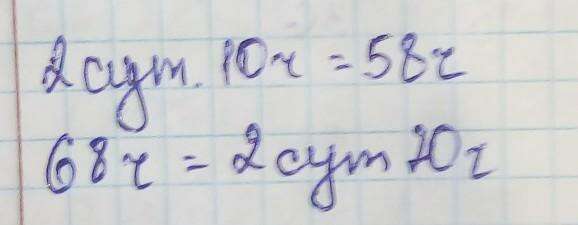 2 сут. 10 ч = 58 ч
68 ч = 2 сут 20 ч